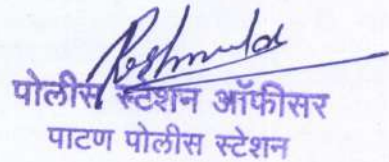 पोलीस स्टेशन ऑफीसर
पाटण पोलीस स्टेशन